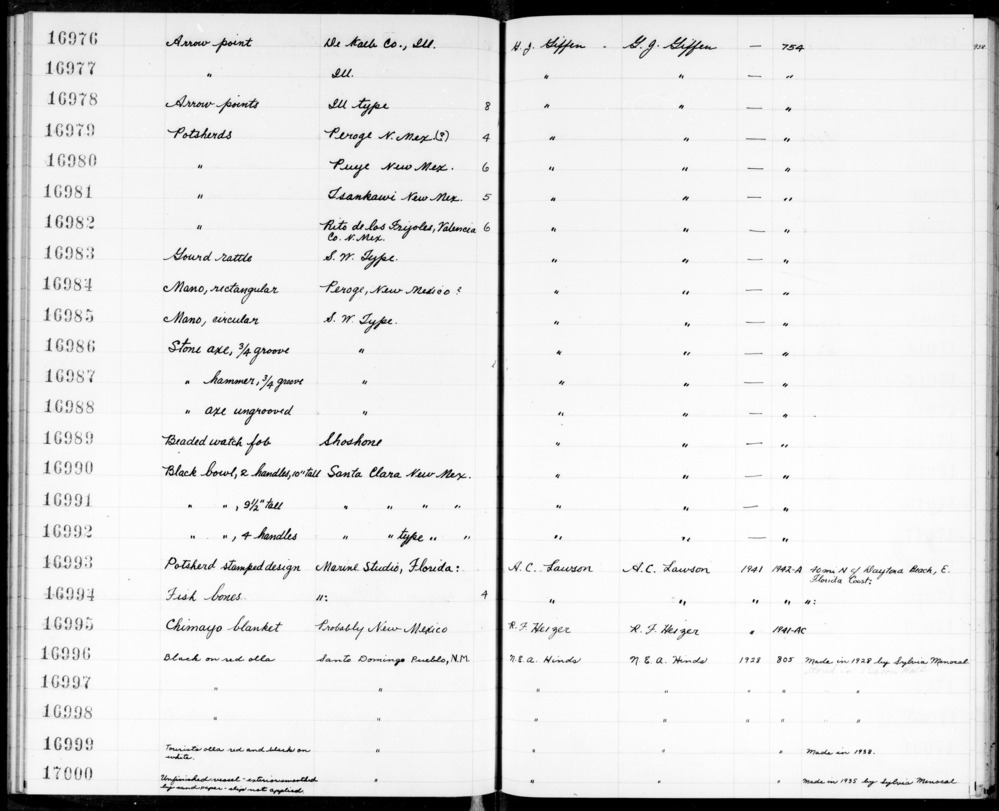 16976 Arrow point De Kalb Co., Ill. G. J. Giffen . G. J. Giffen — 754
16977 " Ill. " " — "
16978 Arrow points Ill type 8 " " — "
16979 Potsherds Peroge N. Mex (?) 4 " " — "
16980 " Puye New Mex. 6 " " — "
16981 " Tsankawi New Mex. 5 " " — "
16982 " Rito de los Frijoles, Valencia 6 " " — "
Co. N. Mex.
16983 Gourd rattle S. W. Type. " " — "
16984 Mano, rectangular Peroge, New Mexico ? " " — "
16985 Mano, circular S. W. Type. " " — "
16986 Stone axe, 3/4 groove " " " — "
16987 " hammer, 3/4 groove " " " — "
16988 " axe ungrooved " " " — "
16989 Beaded watch fob Shoshone " " — "
16990 Black bowl, 2 handles, 10" tall Santa Clara New Mex. " " — "
16991 " ", 9 1/2" tall " " " " " " — "
16992 " ", 4 handles " " type " " " " — "
16993 Potsherd stamped design Marine Studio, Florida: A. C. Lawson A. C. Lawson 1941 1942-A 40 mi N of Daytona Beach, E.
Florida Coast:
16994 Fish bones ": 4 " " " " ":
16995 Chimayo blanket Probably New Mexico R. F. Heizer R. F. Heizer " 1941-AC
16996 Black on red olla Santo Domingo Pueblo, N.M. N. E. A. Hinds N. E. A. Hinds 1928 805 Made in 1928 by Sylvia Menoral
16997 " " " " " " "
16998 " " " " " " "
16999 Tourists olla red and black on " " " " Made in 1938.
white.
17000 Unfinished vessel - exterior smoothed " " " " Made in 1935 by Sylvia Menoral
by sand paper - slip not applied.